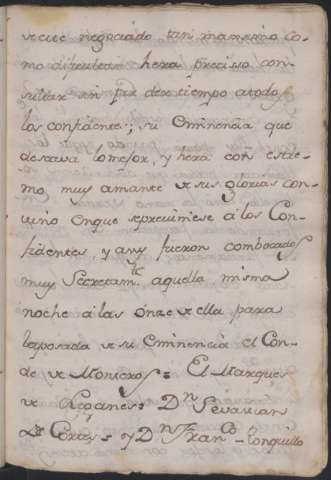 de este negociado tan maximo co-
mo dificultoso hera preciso con-
sultar sin perder tiempo a todos
los confidentes; su Eminencia que
deseava lo mejor, y hera con estre-
mo muy amante de sus glorias con-
vino en que se previniese à los Con-
fidentes, y assy fueron combocados
muy Secretamte aquella misma
noche à las onze de ella para
la posada de su Eminencia el Con-
de de Monteros= El Marques
de Leganes= Dn Sevastian
de Cortes= y Dn Franco Ronquillo